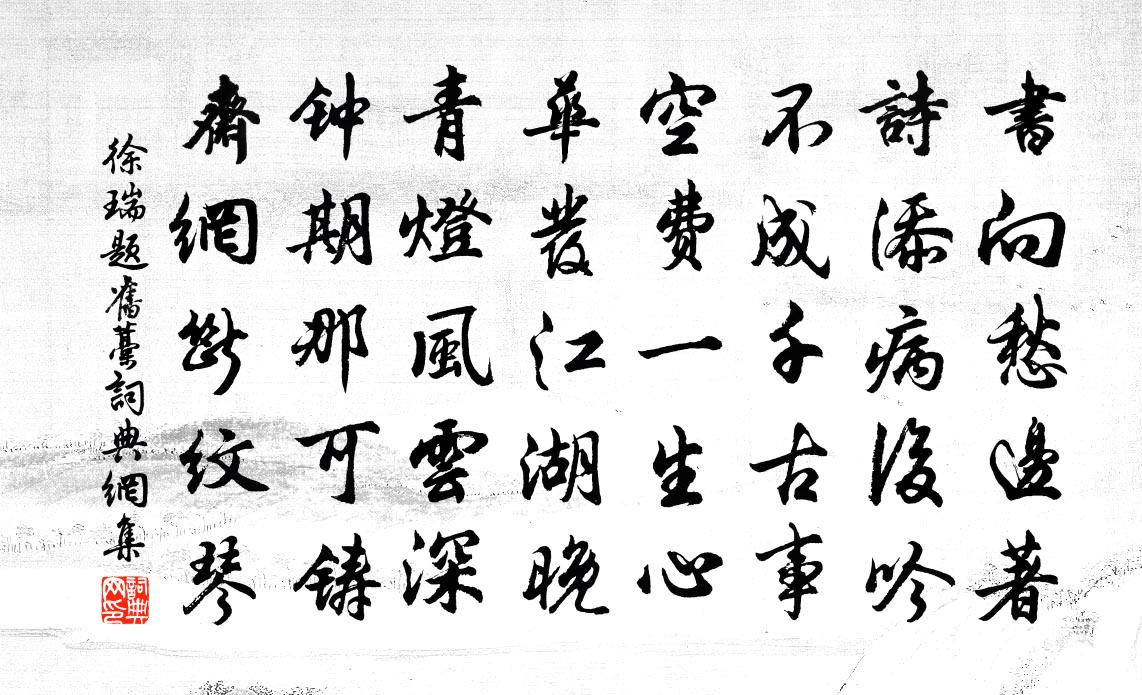 書向愁邊著
詩添病後吟
不成千古事
空費一生心
華發江湖晚
青燈風雲深
钟期那可鑄
齋網斷紋琴
徐瑞题舊藁詞典網集
詞典网印